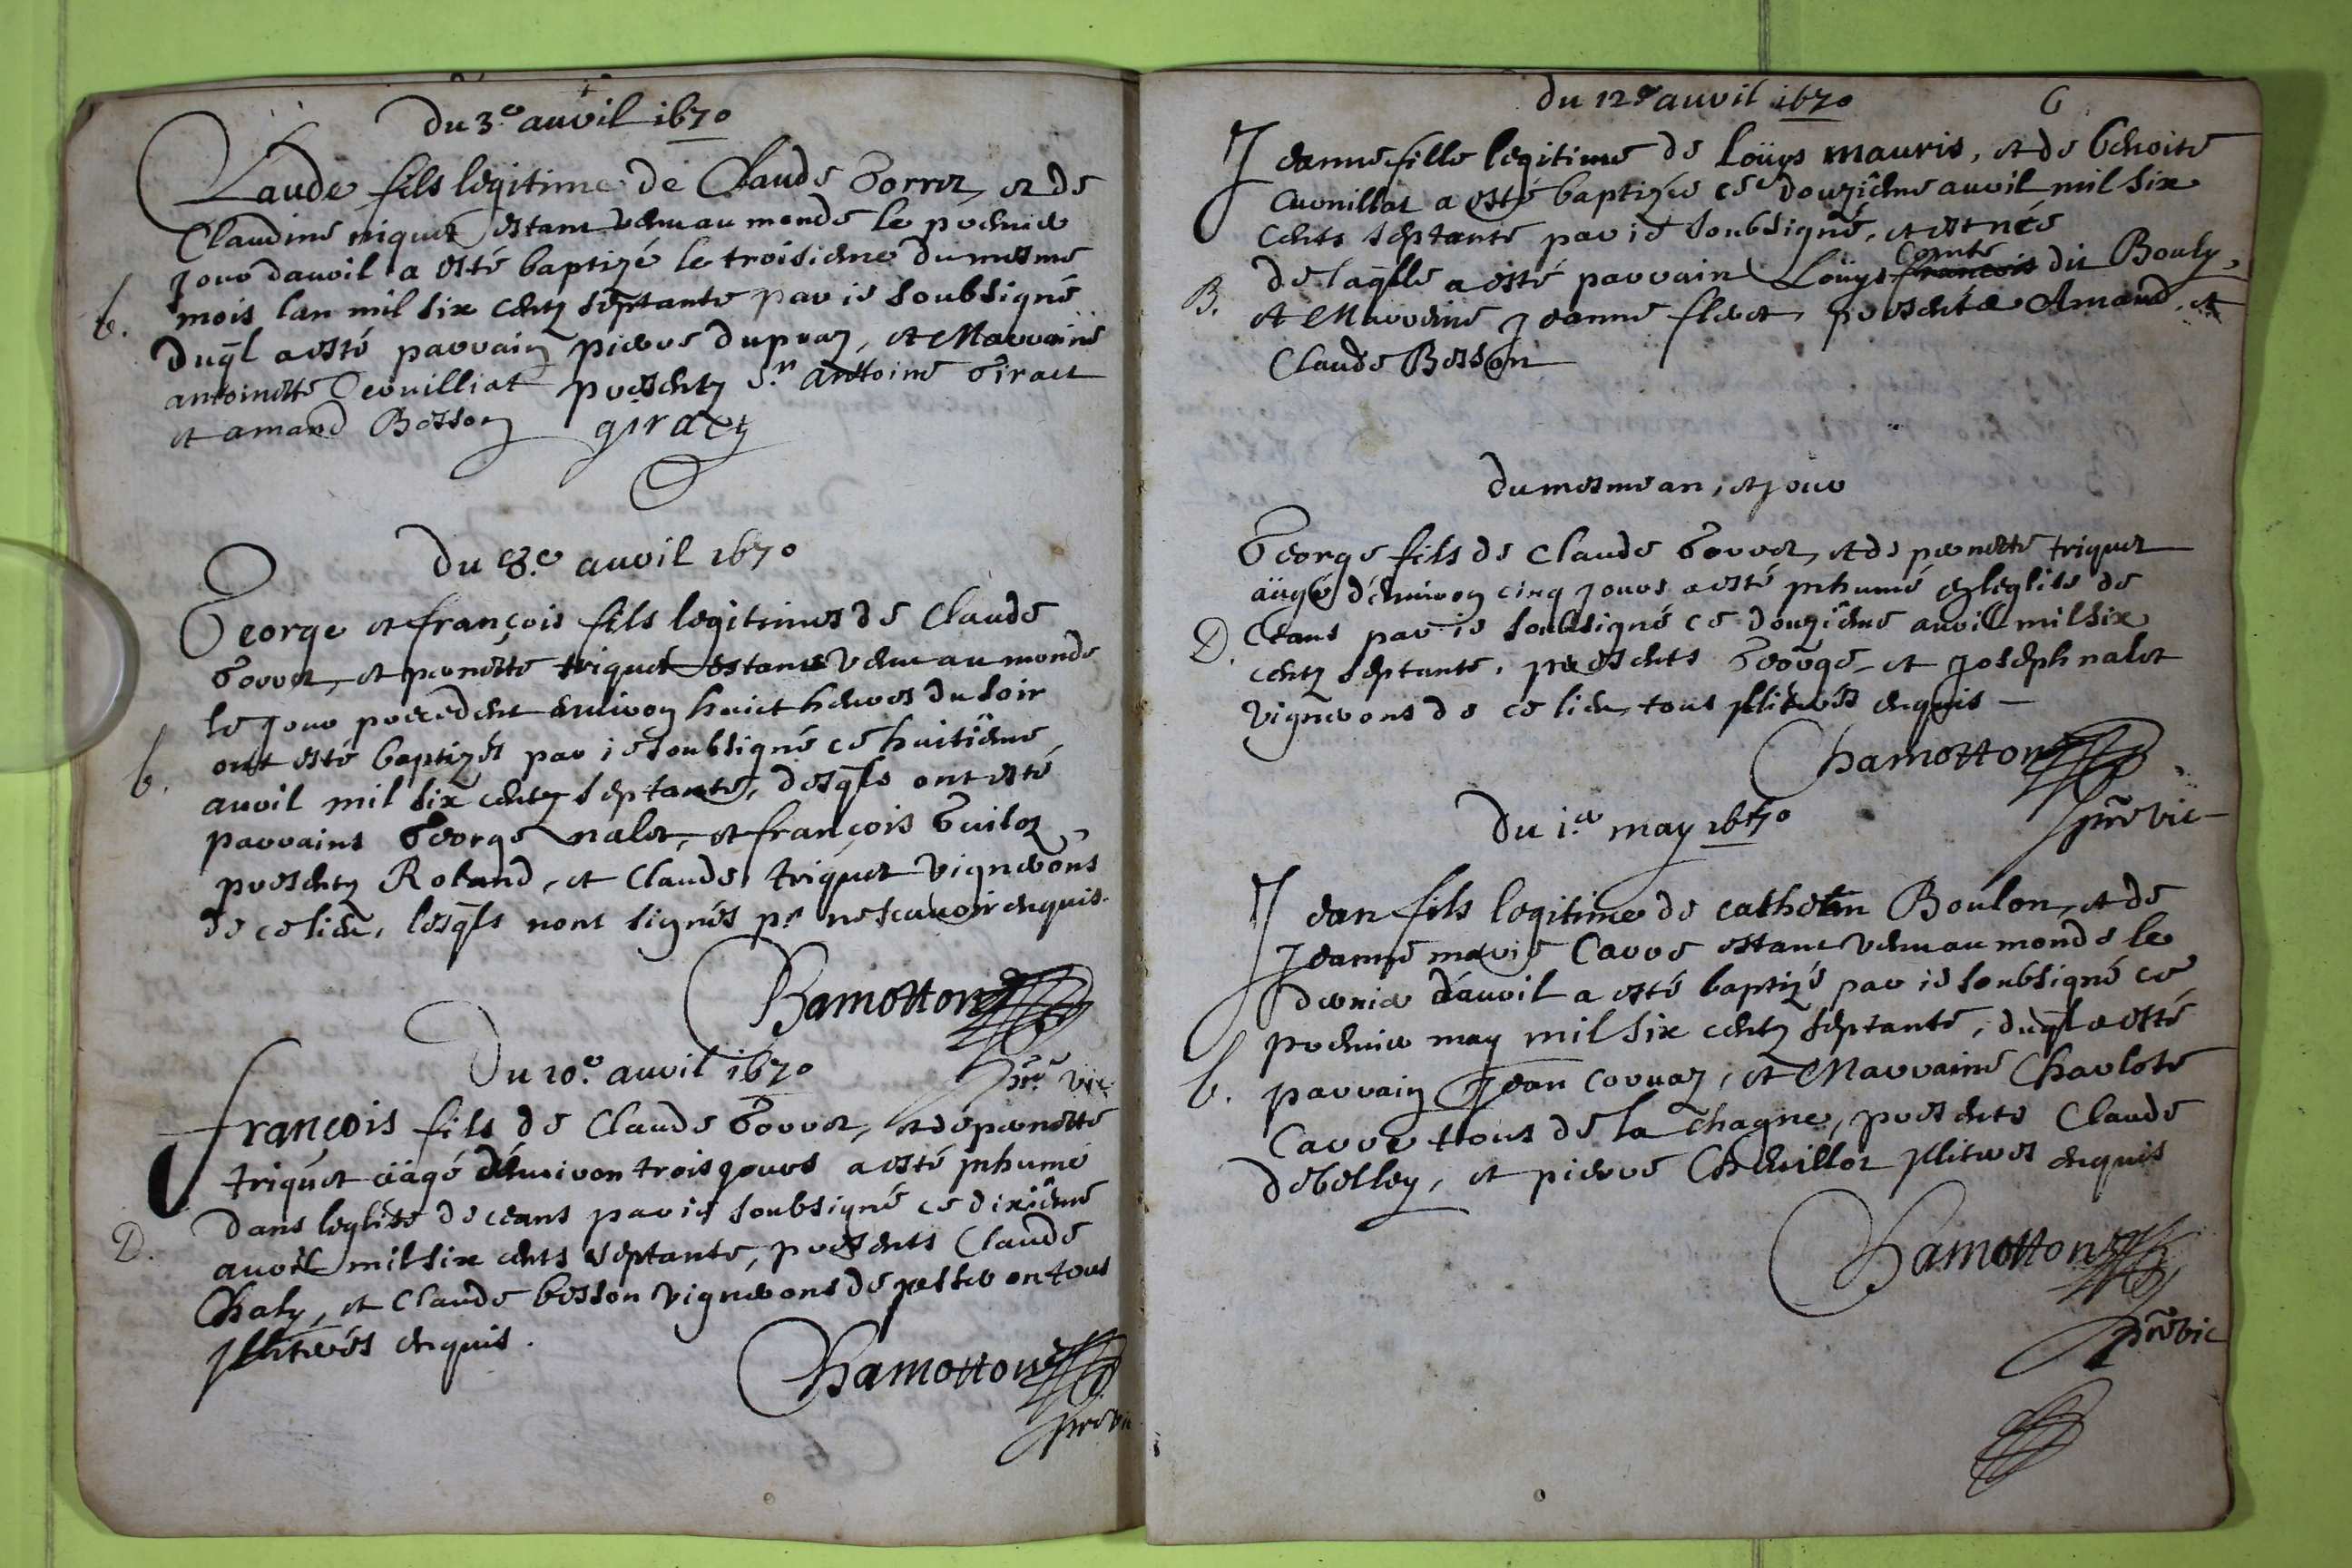 Du 3.e avvil 1670
Claude fils legitime de Claude Gorrez, et de
Claudine niquet estant venu au monde le premier
Jour davril a esté baptizé le troisiême du mesme
b. mois lan mil six centz septante par ie soubsigné
duql a esté parrain pierre dupraz, et Marraine
antoinette presentz Sr. antoine Giract
et amand Besson giract
Du 8.e avril 1670
George et françois fils legitimes de Claude
Gorret, et pernette triquet estants venu au monde
le jour precedent environ huict heures du soir
b. ont esté baptizés par ie soubsigné ce huitiême
avril mil six centz septante, desqls ont esté
parrains George nalet, et françois Guiloz
presentz Roland, et Claude triquet vignerons
de ce lieu, lesqls nont signés pr ne scavoir enquis.
Chamotton
ptre vic.
Du 10.e avril 1670
françois fils de Claude Gorret, et de pernette
triquet aagé d'environ trois jours a esté jnhumé
dans leglise de ceans par ie soubsigné ce dixiême
D. avril mil six cents septante, presents Claude
Chaly, et Claude besson vignerons de tous
jllitérés enquis.
Chamotton
ptre vic
Du 12.e avril 1670 6
Jeanne fille legitime de Loüys mauris, et de benoite
Cuvnillat a esté baptizée ce douziême avril mil six
cents septante par ie soubsigné, et est née
de laqlle a esté parrain Loüys françois Comte dit Bouly,
B. et Marreine Jeanne fleret, presents Amand, et
Claude Besson
Du mesme an, et jour
George fils de Claude Gorret, et de pernette triquet
aagé d'environ cinq jours a esté jnhumé en leglise de
D. Ceans par ie soubsigné ce douziême avril mil six
centz septante, presents George, et Joseph nalet
vignerons de ce lieu, tous jllitérés enquis —
Chamotton
ptre vic
Du 1.er may 1670
Jean fils legitime de cathelin Boulon, et de
Jeanne marie Carre estant venu au monde le
dernier d'avril a esté baptizé par ie soubsigné ce
premier may mil six centz septante, duql a esté
b. parrain Jean Corvaz, et Marraine Charlote
Carre tous de la Chagne, presents Claude
debelley, et pierre Chevillot jllitérés enquis
Chamotton
ptre vic